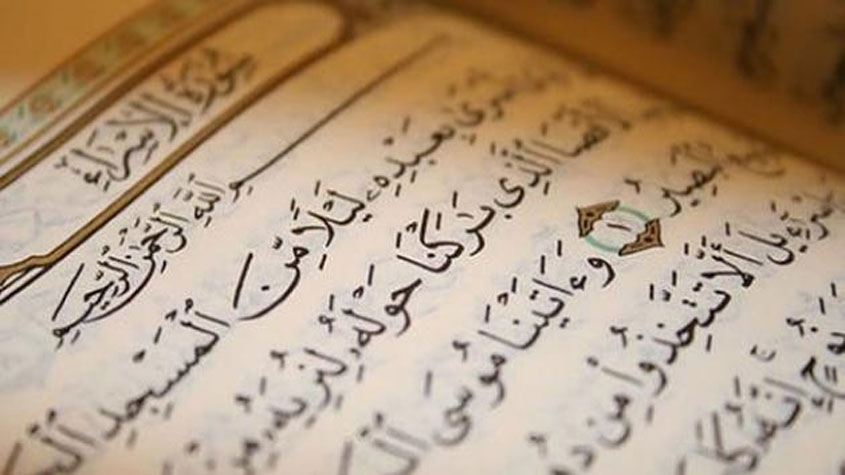 سُورَةُ الْإِسْرَاءِ
بِسْمِ اللَّهِ الرَّحْمَٰنِ الرَّحِيمِ
أَسْرَىٰ بِعَبْدِهِۦ لَيْلًا مِّنَ الْمَسْجِدِ
الْأَقْصَا الَّذِي بَٰرَكْنَا حَوْلَهُۥ لِنُرِيَهُۥ مِنْ
الْبَصِيرُ ١ وَءَاتَيْنَا مُوسَى
إِسْرَٰٓءِيلَ أَلَّا تَتَّخِذُوا۟ مِن
نُوحٍ إِنَّهُۥ